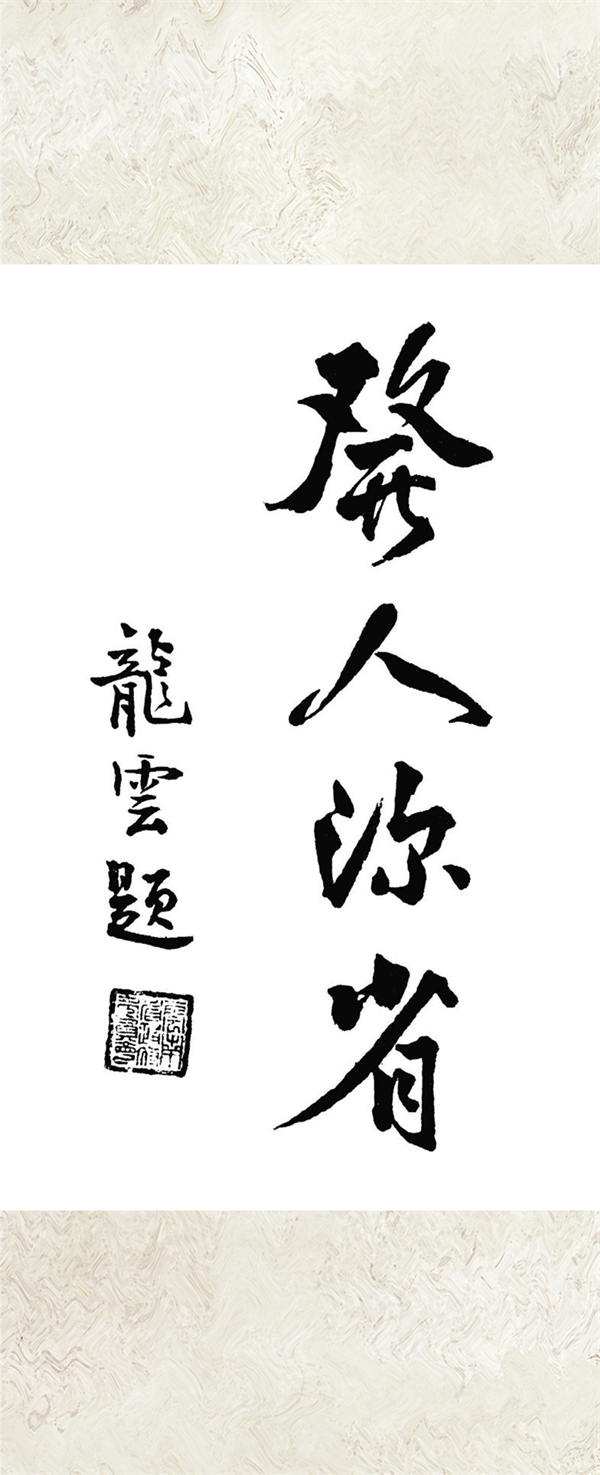 發人深省
龍雲題